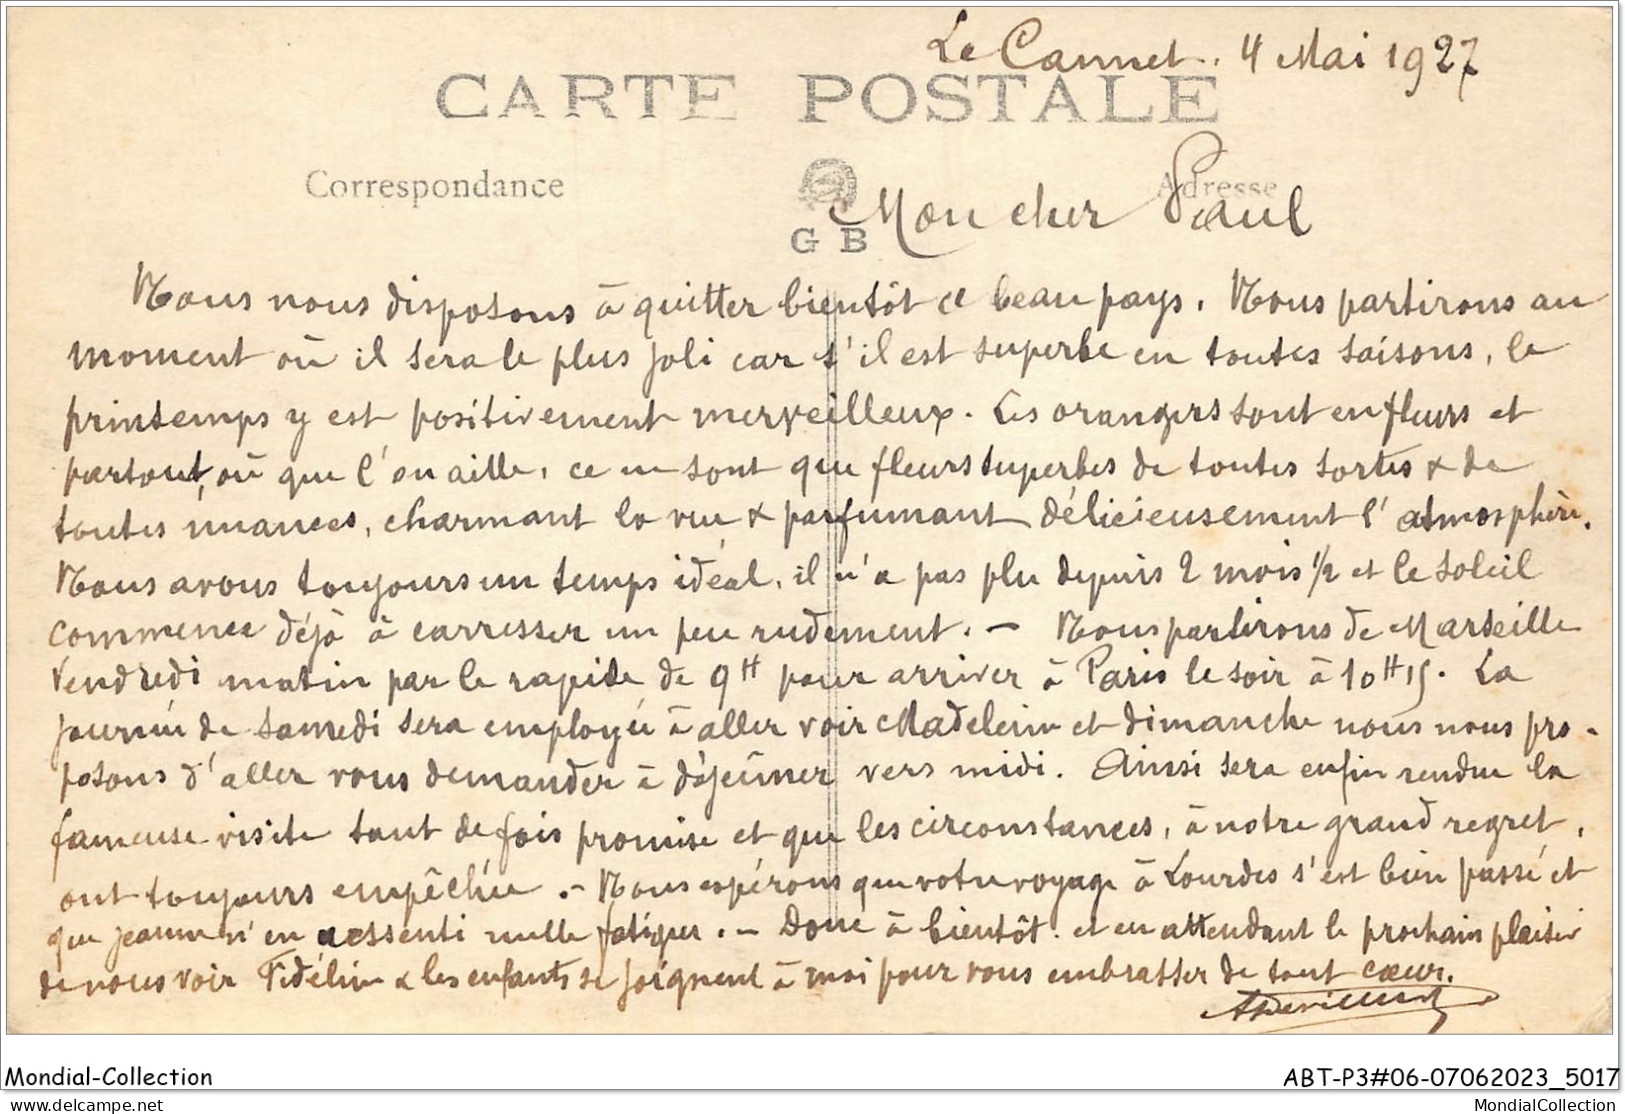 Le Cannet. 4 Mai 1927
CARTE POSTALE
Correspondance
Adresse
G B
Mon cher Paul
Nous nous disposons à quitter bientôt ce beau pays. Nous partirons au
moment où il sera le plus joli car s'il est superbe en toutes saisons, le
printemps y est positivement merveilleux. Les orangers sont en fleurs et
partout, où que l'on aille, ce ne sont que fleurs superbes de toutes sortes & de
toutes nuances, charmant la vue & parfumant délicieusement l'atmosphère.
Nous avons toujours un temps idéal, il n'a pas plu depuis 2 mois 1/2 et le soleil
commence déjà à carresser un peu rudement. - Nous partirons de Marseille
Vendredi matin par le rapide de 9H pour arriver à Paris le soir à 10H15. La
journée de Samedi sera employée à aller voir Madeleine et dimanche nous nous pro-
posons d'aller vous demander à déjeûner vers midi. Ainsi sera enfin rendue la
fameuse visite tant de fois promise et que les circonstances, à notre grand regret,
ont toujours empêchée. - Nous espérons que votre voyage à Lourdes s'est bien passé et
que Jeanne n'en a ressenti nulle fatigue. - Donc à bientôt. et en attendant le prochain plaisir
de nous voir Fidéline & les enfants se joignent à moi pour vous embrasser de tout cœur.
Mondial-Collection
ABT-P3#06-07062023_5017
picclick-delcampe.net
MondialCollection